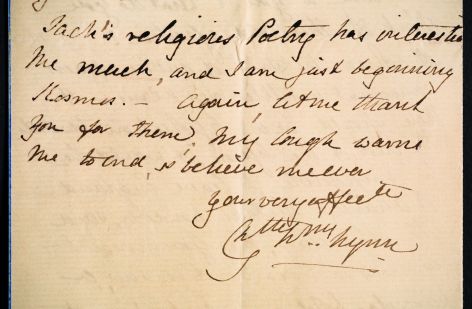 Jack's religious Poetry has interested
me much, and I am just beginning
Kosmos. — Again, let me thank
you for them, My Cough warns
me to end, & believe me ever
your very affecte